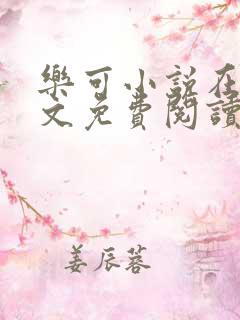 樂可小說在
文免費閱讀
姜辰蓉